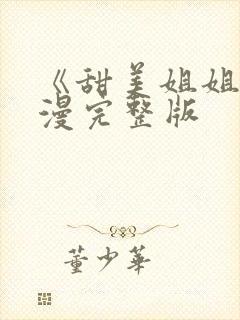 《甜美姐姐
漫完整版
董少华